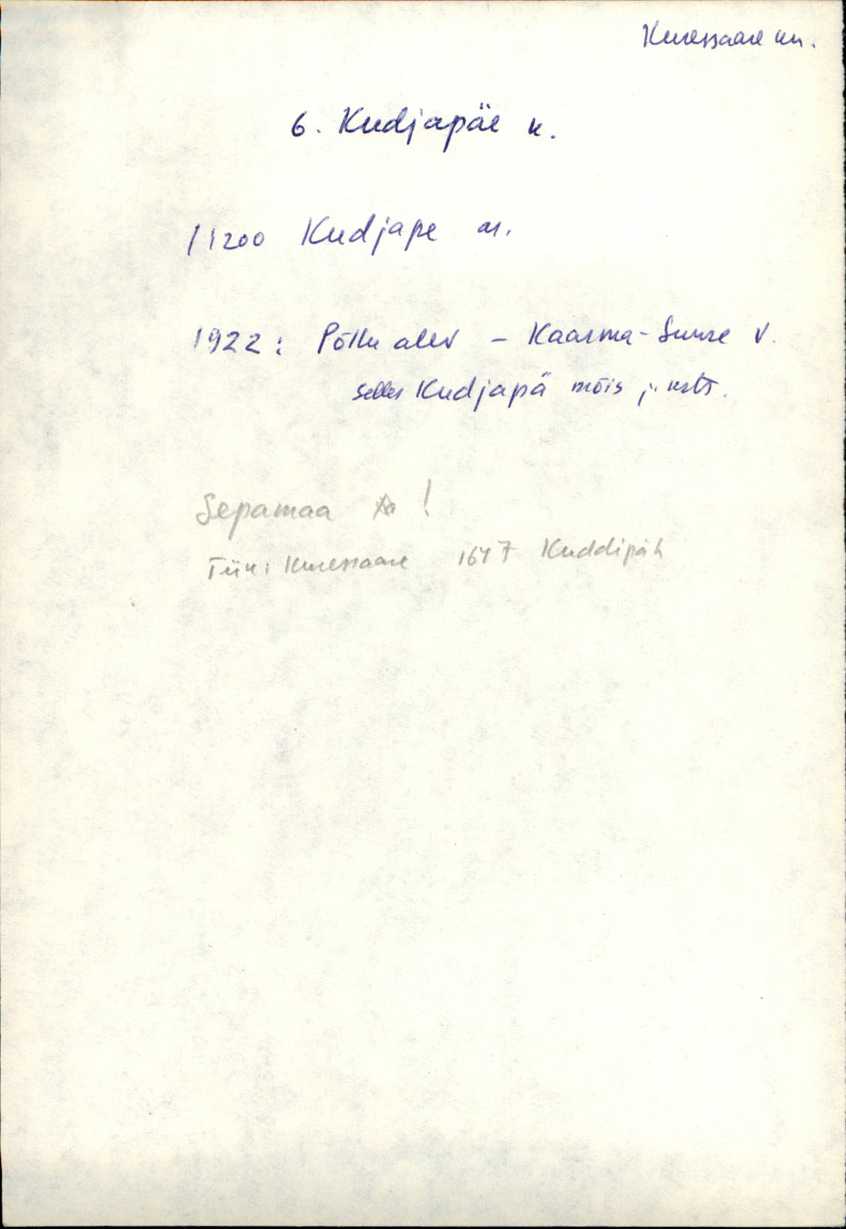 Kuressaare kn.
6. Kudjapäe k.
1:1200 Kudjape as.
1922: Põllu alev - Kaarma-Suure v.
selles Kudjapä mõis j.
Sepamaa !
Tiik: Kuressaare 1617 Kuddipäh